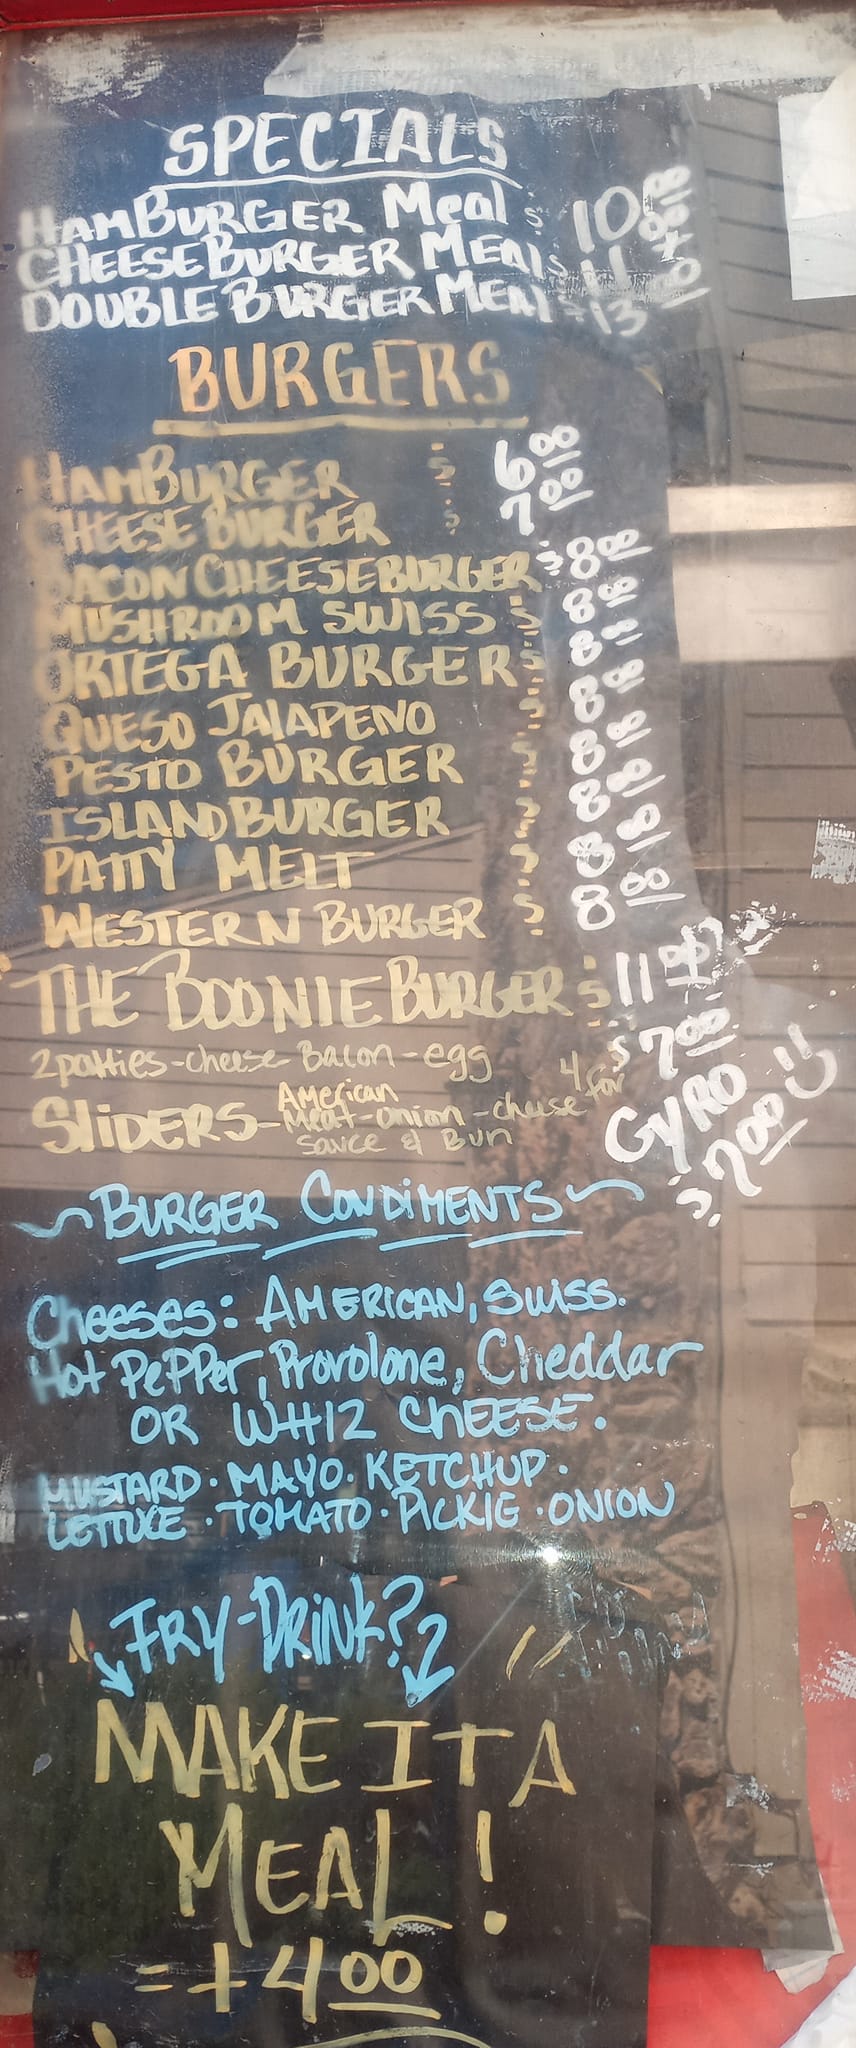 SPECIALS
HAMBURGER Meal $ 10.00
CHEESEBURGER MEAL $ 11
DOUBLE BURGER MEAL $ 13
BURGERS
HAMBURGER $ 6.00
CHEESEBURGER $ 7.00
BACON CHEESEBURGER $ 8.00
MUSHROOM SWISS $ 8.00
ORTEGA BURGER $ 8.00
QUESO JALAPENO $ 8.00
PESTO BURGER $ 8.00
ISLAND BURGER $ 8.00
PATTY MELT $ 8.00
WESTERN BURGER $ 8.00
THE BOONIE BURGER $ 11.00
2 patties-cheese-Bacon-egg
SLIDERS-American Meat-onion-cheese sauce & Bun 4 for $ 7.00
GYRO
$ 7.00
~BURGER CONDIMENTS~
Cheeses: AMERICAN, SWISS.
Hot PePPer, Provolone, Cheddar
OR WHIZ CHEESE.
MUSTARD · MAYO · KETCHUP ·
LETTUCE · TOMATO · PICKLE · ONION
FRY-DRINK?
MAKE IT A
MEAL!
= +4.00